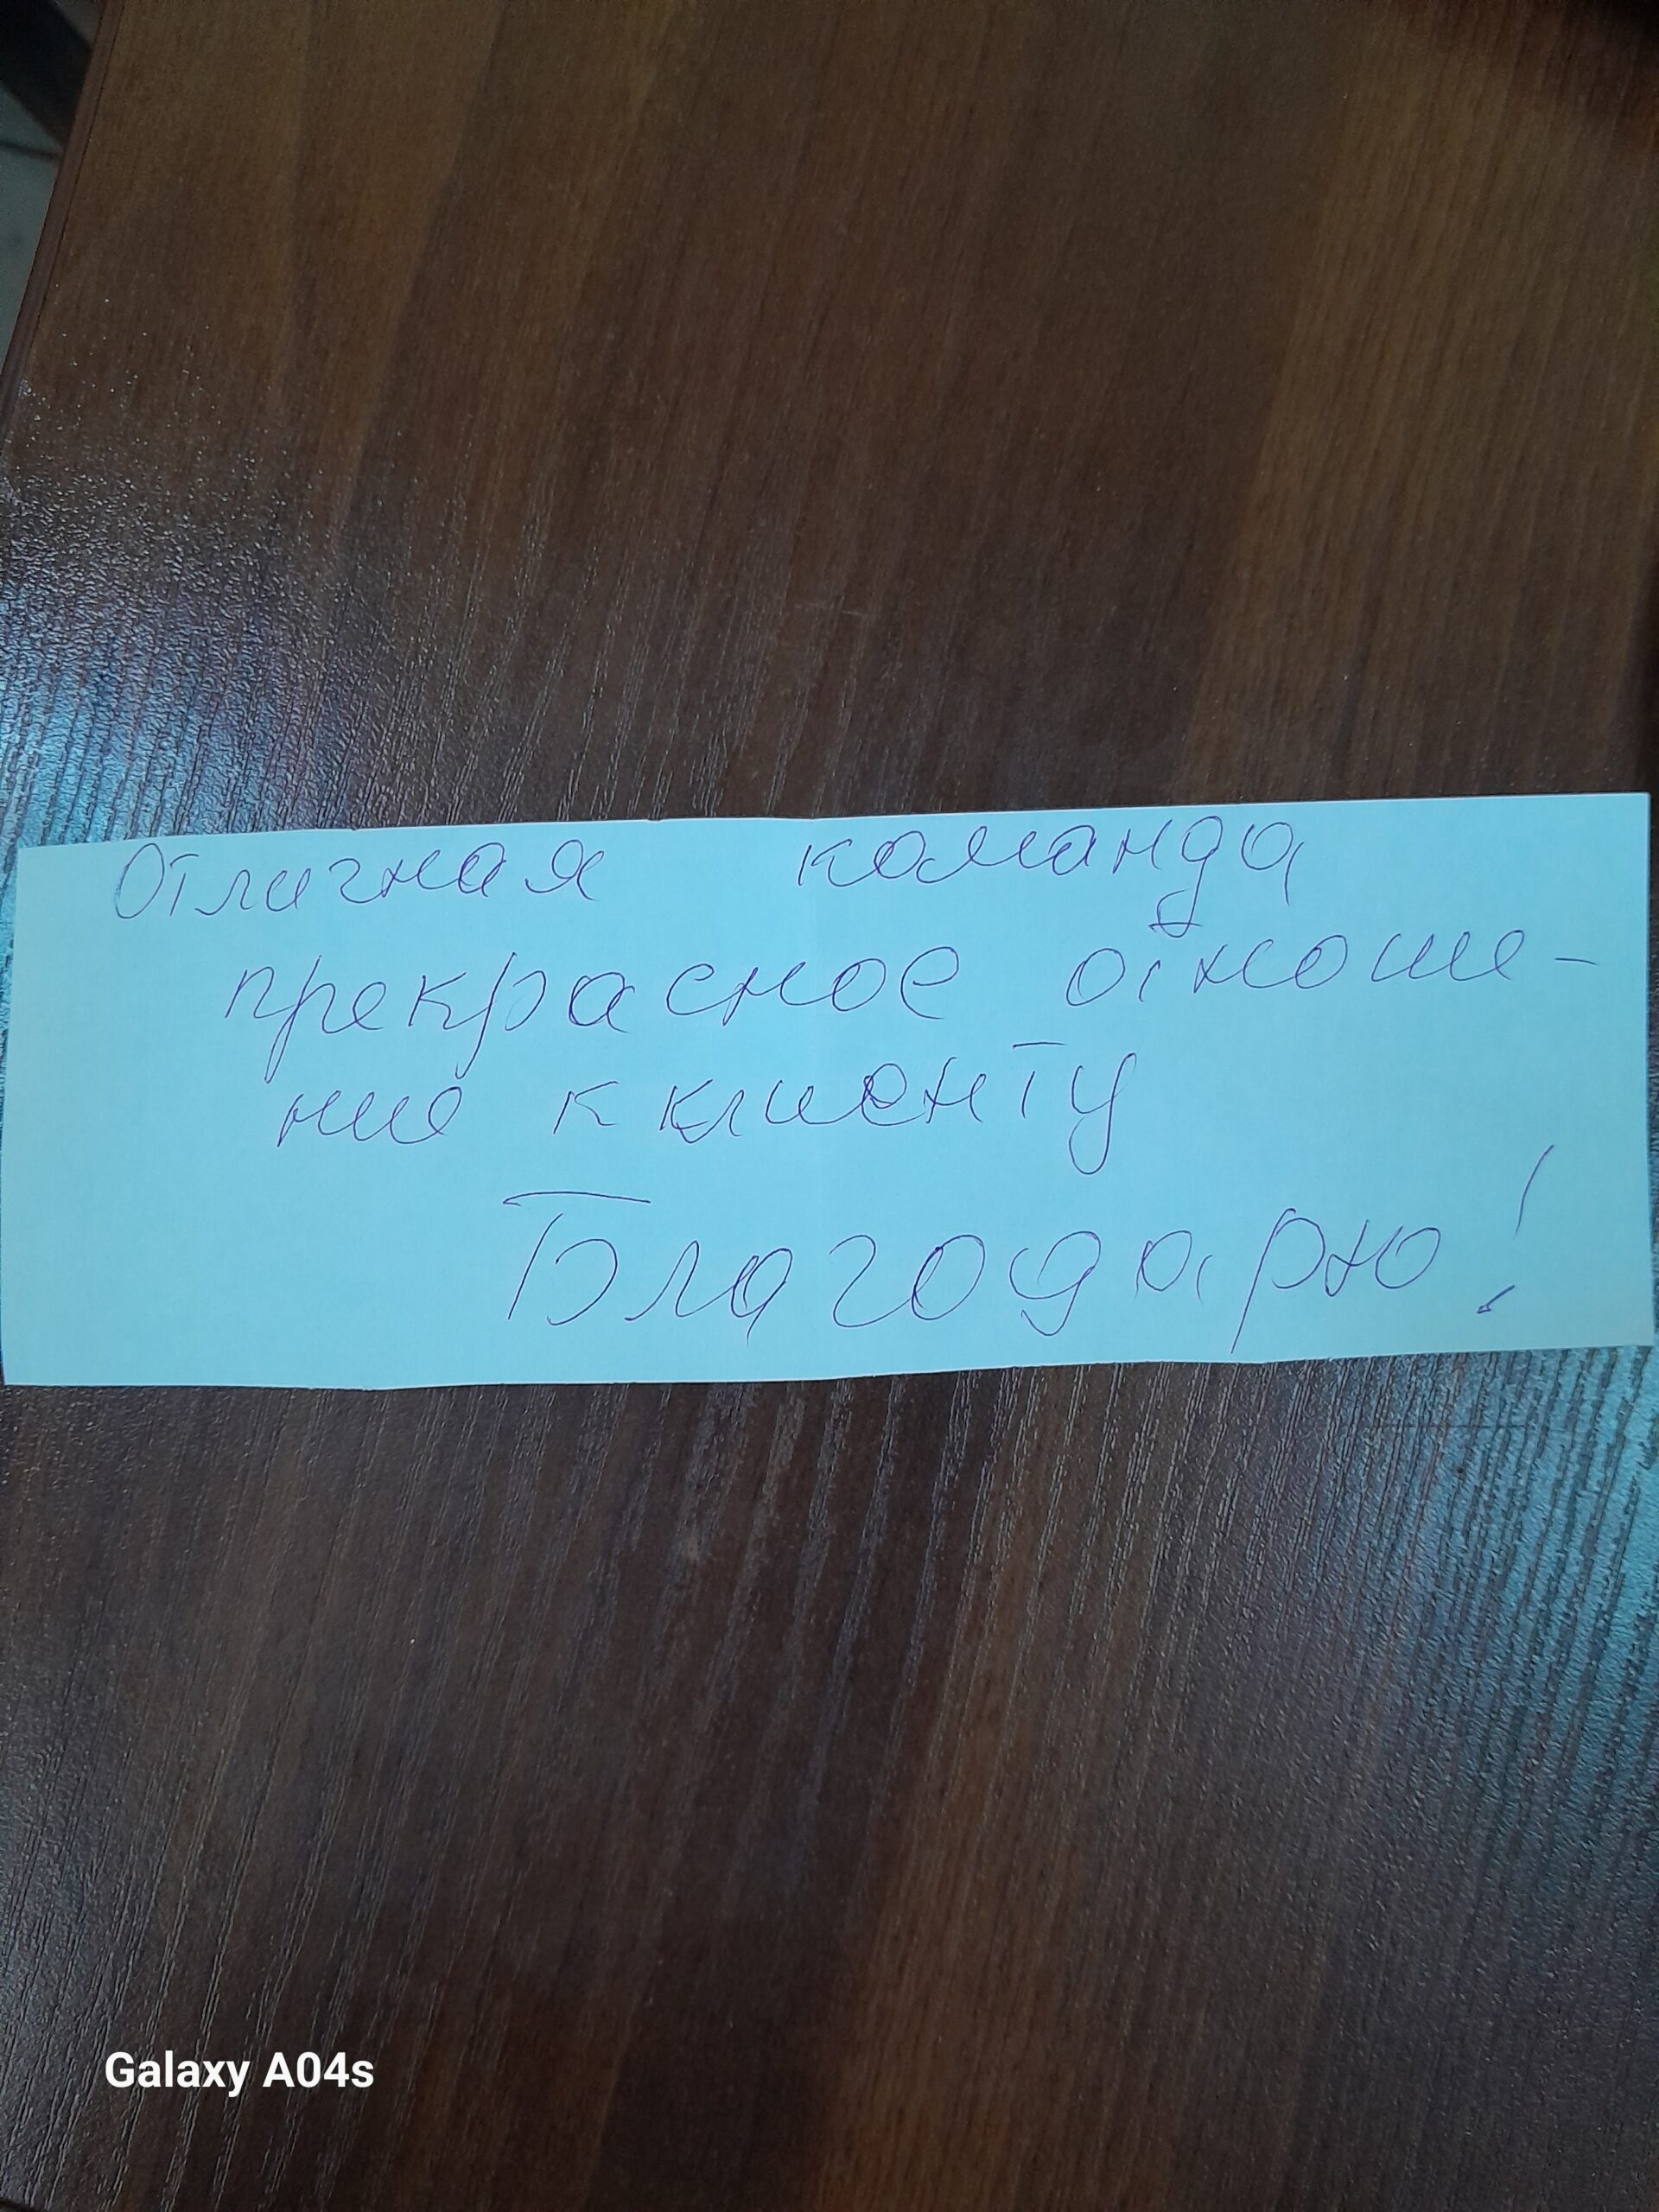 Отличная команда
прекрасное отноше-
ние к клиенту
Благодарю!
Galaxy A04s